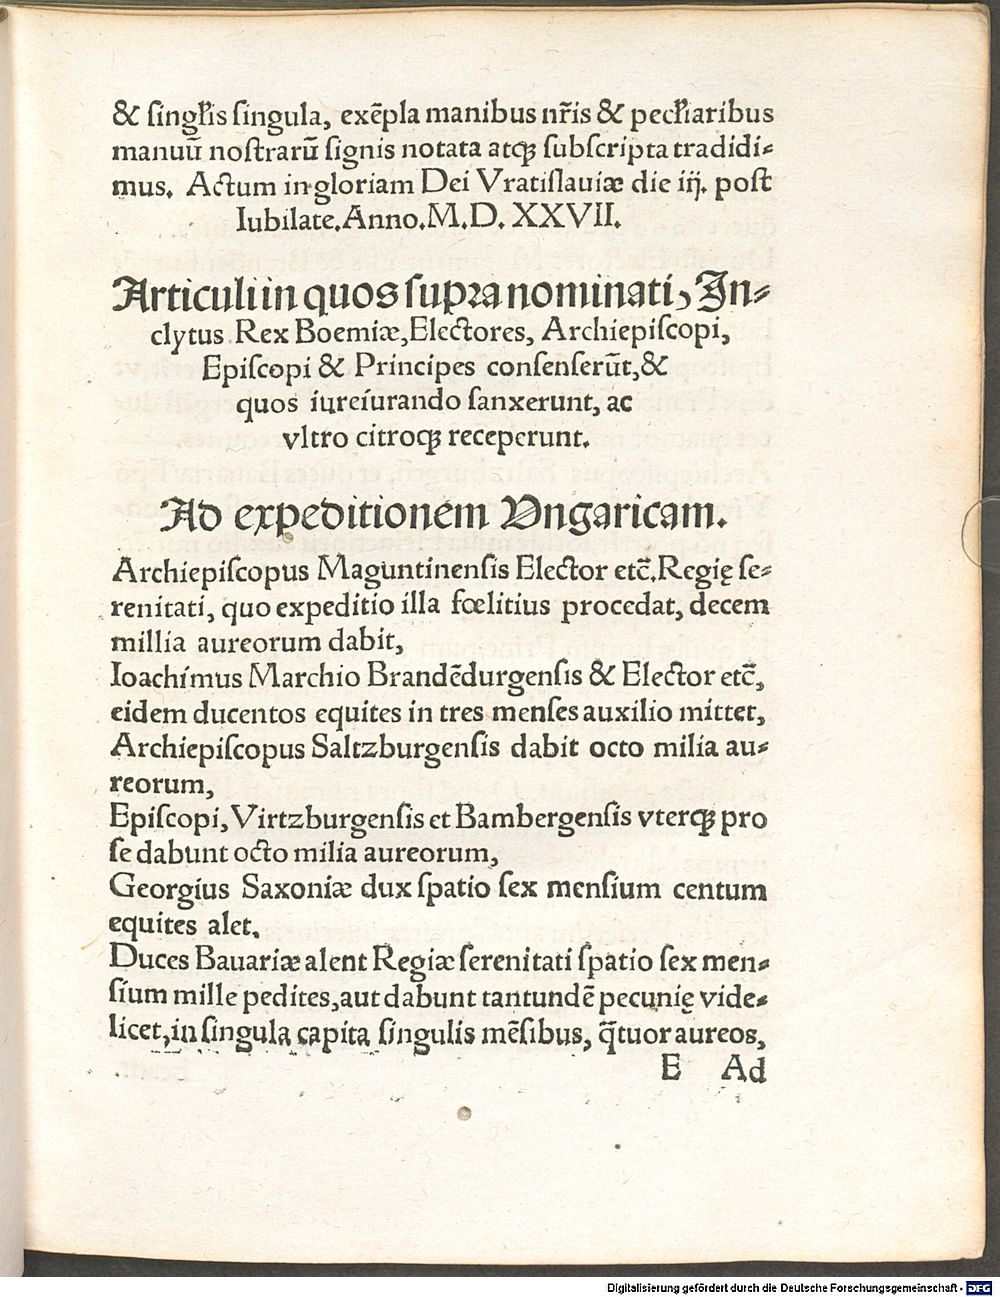 & singľis singula, exẽpla manibus nr̃is & pecľiaribus
manuū nostrarũ signis notata atqꝫ subscripta tradidi⸗
mus. Actum in gloriam Dei Vratislauiæ die iij. post
Iubilate. Anno. M. D. XXVII.
Articuli in quos supra nominati, In⸗
clytus Rex Boemiæ, Electores, Archiepiscopi,
Episcopi & Principes consenserũt, &
quos iureiurando sanxerunt, ac
vltro citroqꝫ receperunt.
Ad expeditionem Vngaricam.
Archiepiscopus Maguntinensis Elector etc̃. Regię se⸗
renitati, quo expeditio illa fœlitius procedat, decem
millia aureorum dabit,
Ioachimus Marchio Brandẽdurgensis & Elector etc̃,
eidem ducentos equites in tres menses auxilio mittet,
Archiepiscopus Saltzburgensis dabit octo milia au⸗
reorum,
Episcopi, Virtzburgensis et Bambergensis vterqꝫ pro
se dabunt octo milia aureorum,
Georgius Saxoniæ dux spatio sex mensium centum
equites alet.
Duces Bauariæ alent Regiæ serenitati spatio sex men⸗
sium mille pedites, aut dabunt tantundẽ pecunię vide⸗
licet, in singula capita singulis mẽsibus, q̃tuor aureos,
E Ad
Digitalisierung gefördert durch die Deutsche Forschungsgemeinschaft - DFG